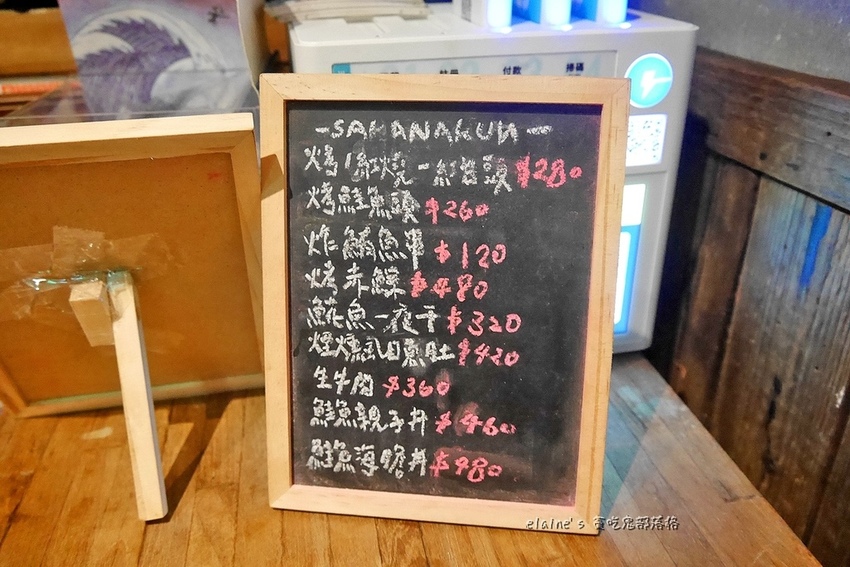 付款
掃碼
-SAKANAKUN-
烤/紅燒-紅喉頭$280
烤鮭魚頭$260
炸鮪魚串$120
烤赤鯮$480
魠魚一夜干$320
煙燻虱目魚肚$420
生牛肉$360
鮭魚親子丼$460
鮭魚海膽丼$980
elaine's 貪吃鬼部落格